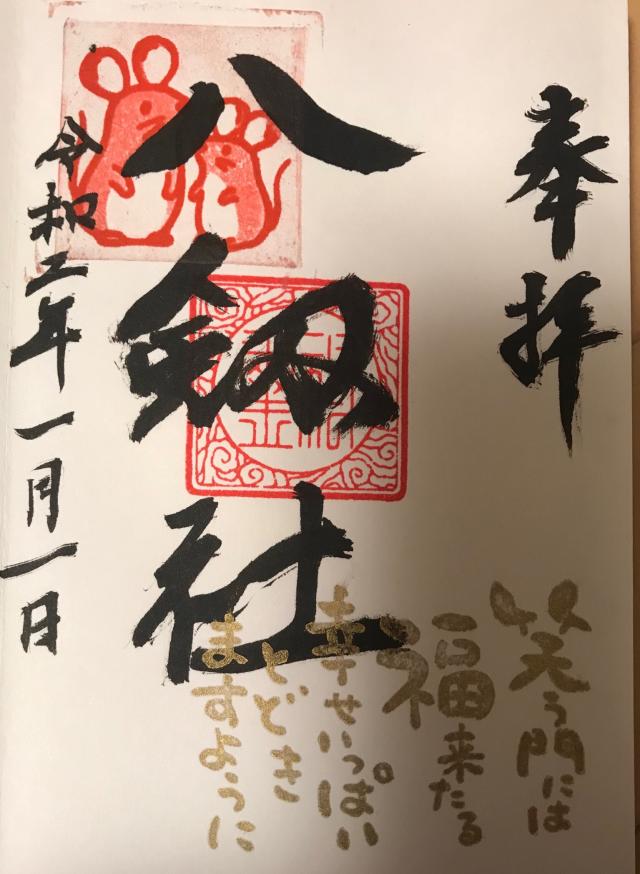 奉拝
八剱社
令和二年一月一日
笑う門には
福来たる
幸せいっぱい
とどき
ますように